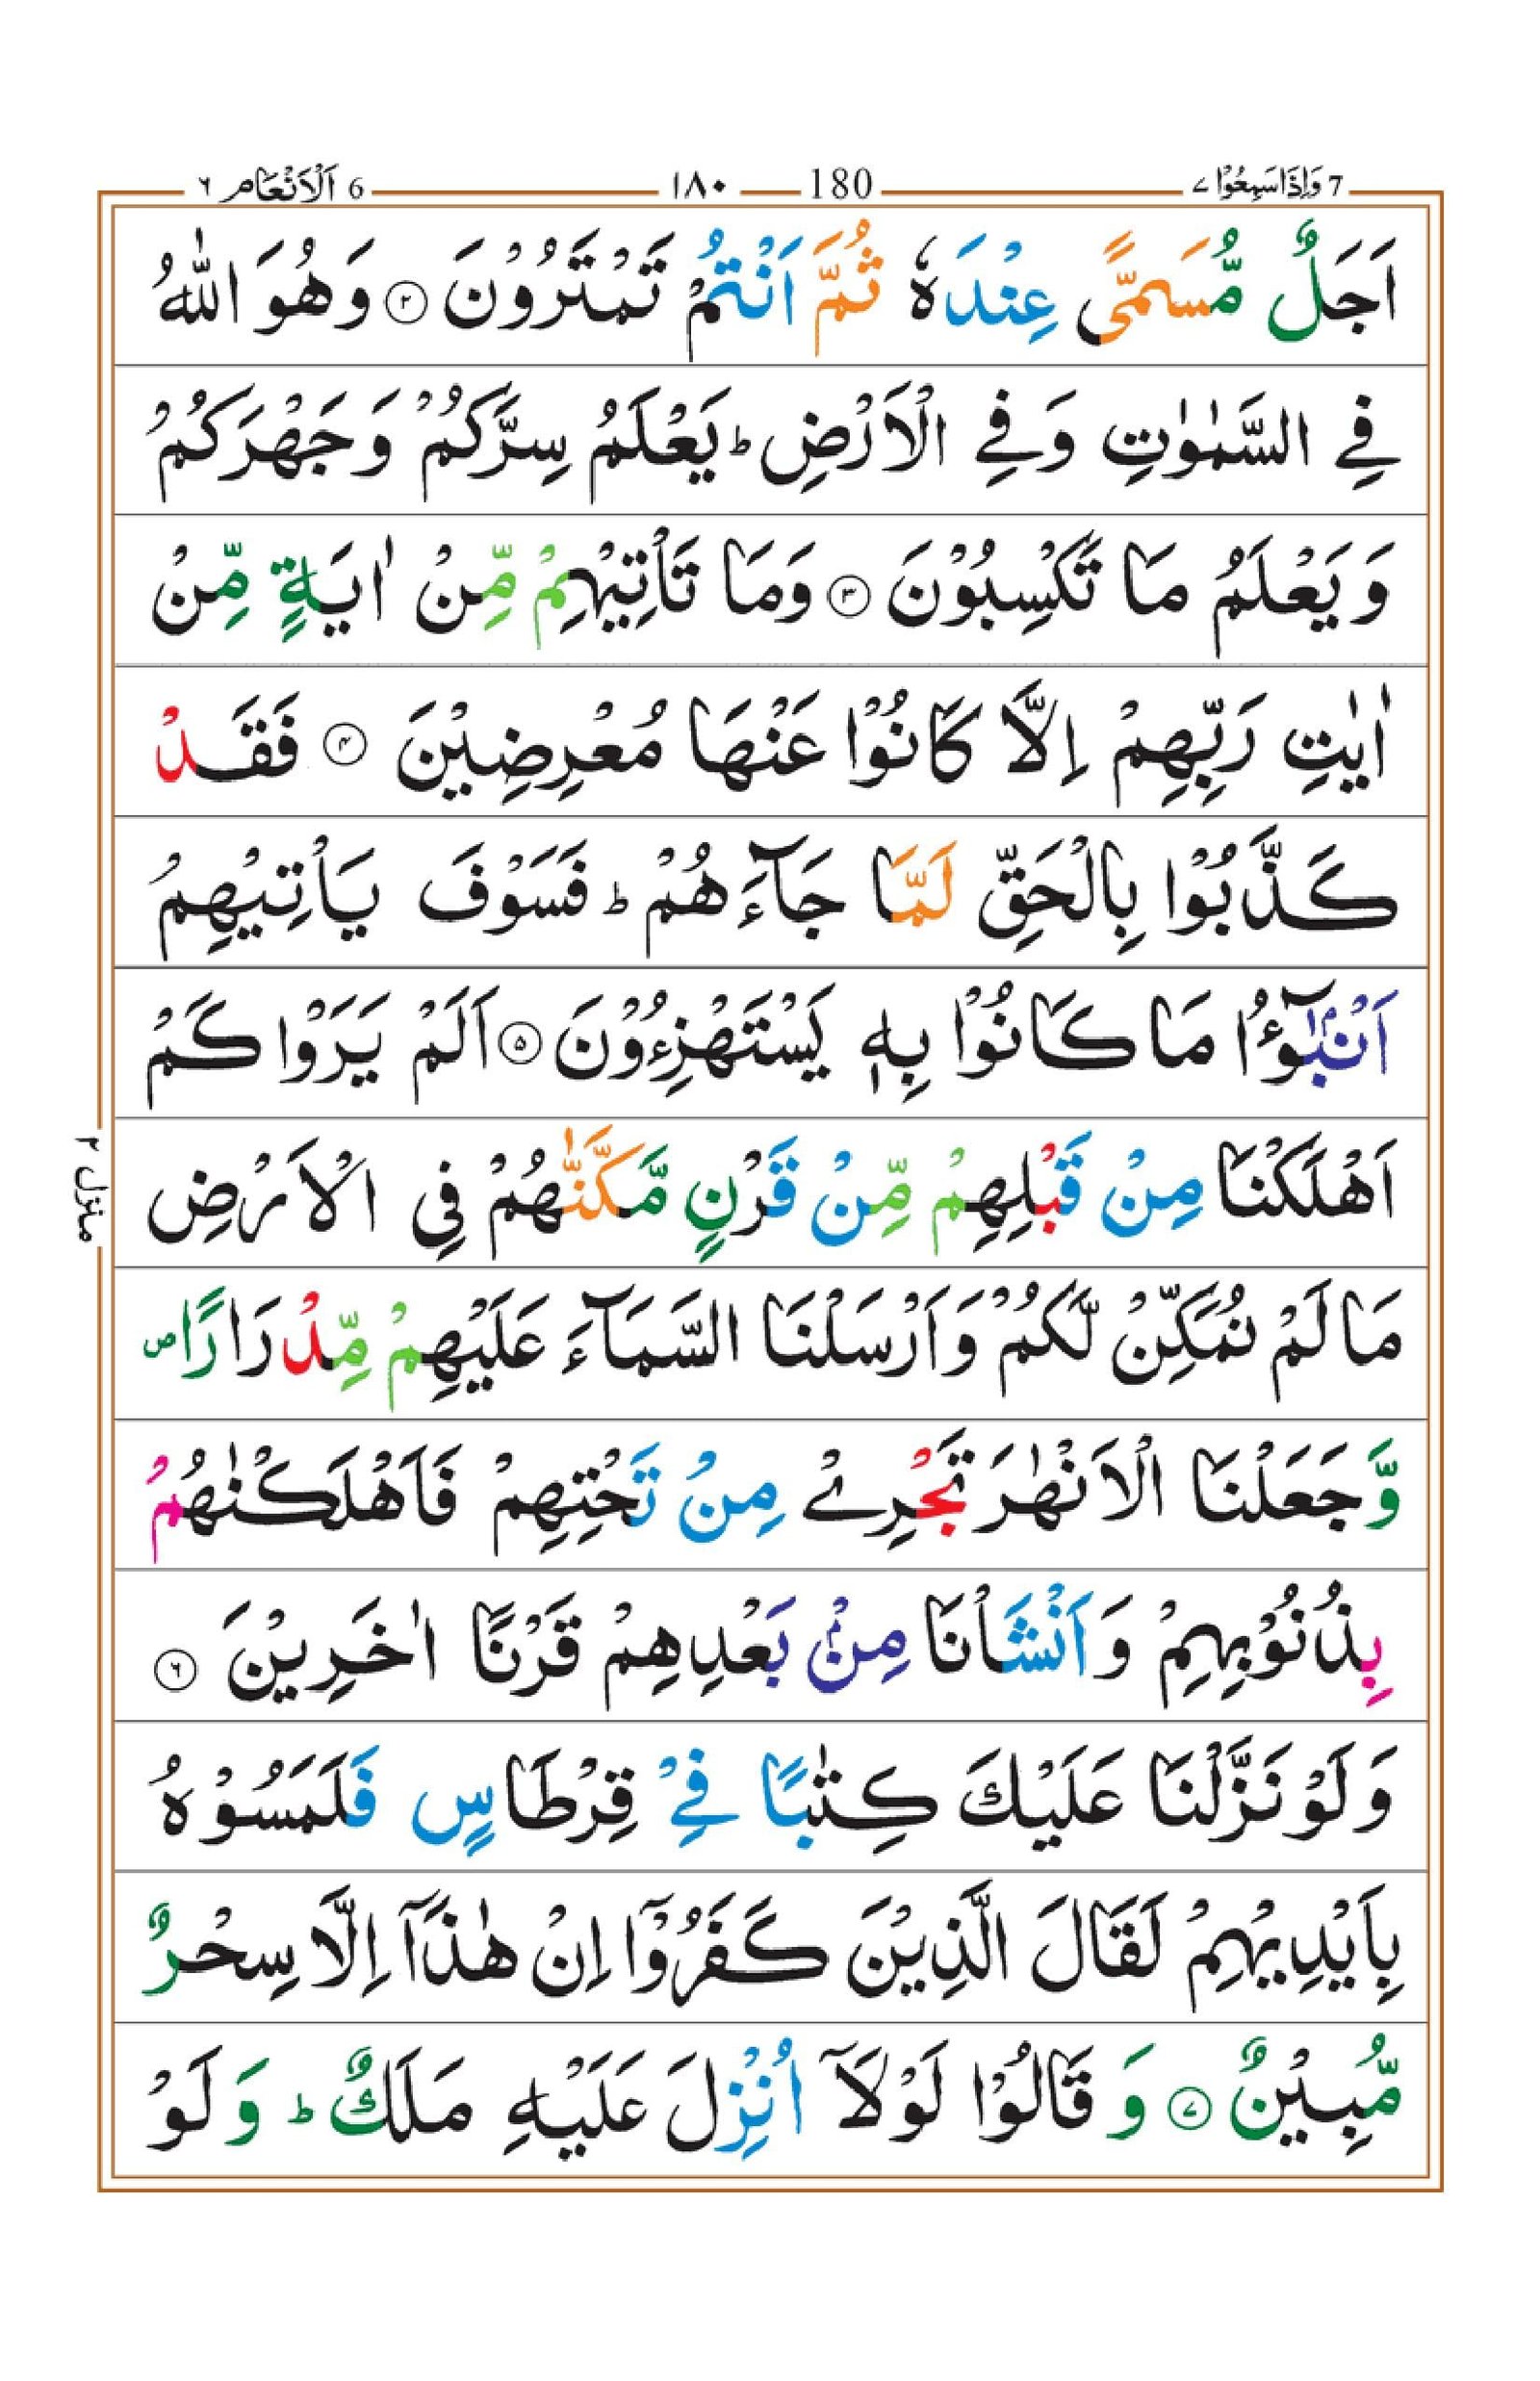 7 وَاِذَا سَمِعُوْا ٧ 180 ١٨٠ 6 اَلْاَنْعَام ٦
اَجَلٌ مُّسَمًّى عِنْدَهٗ ثُمَّ اَنْتُمْ تَمْتَرُوْنَ ۝٢ وَهُوَ اللّٰهُ
فِي السَّمٰوٰتِ وَفِي الْاَرْضِ ؕ يَعْلَمُ سِرَّكُمْ وَجَهْرَكُمْ
وَيَعْلَمُ مَا تَكْسِبُوْنَ ۝٣ وَمَا تَاْتِيْهِمْ مِّنْ اٰيَةٍ مِّنْ
اٰيٰتِ رَبِّهِمْ اِلَّا كَانُوْا عَنْهَا مُعْرِضِيْنَ ۝٤ فَقَدْ
كَذَّبُوْا بِالْحَقِّ لَمَّا جَآءَهُمْ ؕ فَسَوْفَ يَاْتِيْهِمْ
اَنْۢبٰٓؤُا مَا كَانُوْا بِهٖ يَسْتَهْزِءُوْنَ ۝٥ اَلَمْ يَرَوْا كَمْ
اَهْلَكْنَا مِنْ قَبْلِهِمْ مِّنْ قَرْنٍ مَّكَّنّٰهُمْ فِي الْاَرْضِ
مَا لَمْ نُمَكِّنْ لَّكُمْ وَاَرْسَلْنَا السَّمَآءَ عَلَيْهِمْ مِّدْرَارًا ص
وَّجَعَلْنَا الْاَنْهٰرَ تَجْرِيْ مِنْ تَحْتِهِمْ فَاَهْلَكْنٰهُمْ
بِذُنُوْبِهِمْ وَاَنْشَاْنَا مِنْۢ بَعْدِهِمْ قَرْنًا اٰخَرِيْنَ ۝٦
وَلَوْ نَزَّلْنَا عَلَيْكَ كِتٰبًا فِيْ قِرْطَاسٍ فَلَمَسُوْهُ
بِاَيْدِيْهِمْ لَقَالَ الَّذِيْنَ كَفَرُوْٓا اِنْ هٰذَآ اِلَّا سِحْرٌ
مُّبِيْنٌ ۝٧ وَقَالُوْا لَوْلَآ اُنْزِلَ عَلَيْهِ مَلَكٌ ؕ وَلَوْ
منزل ٢